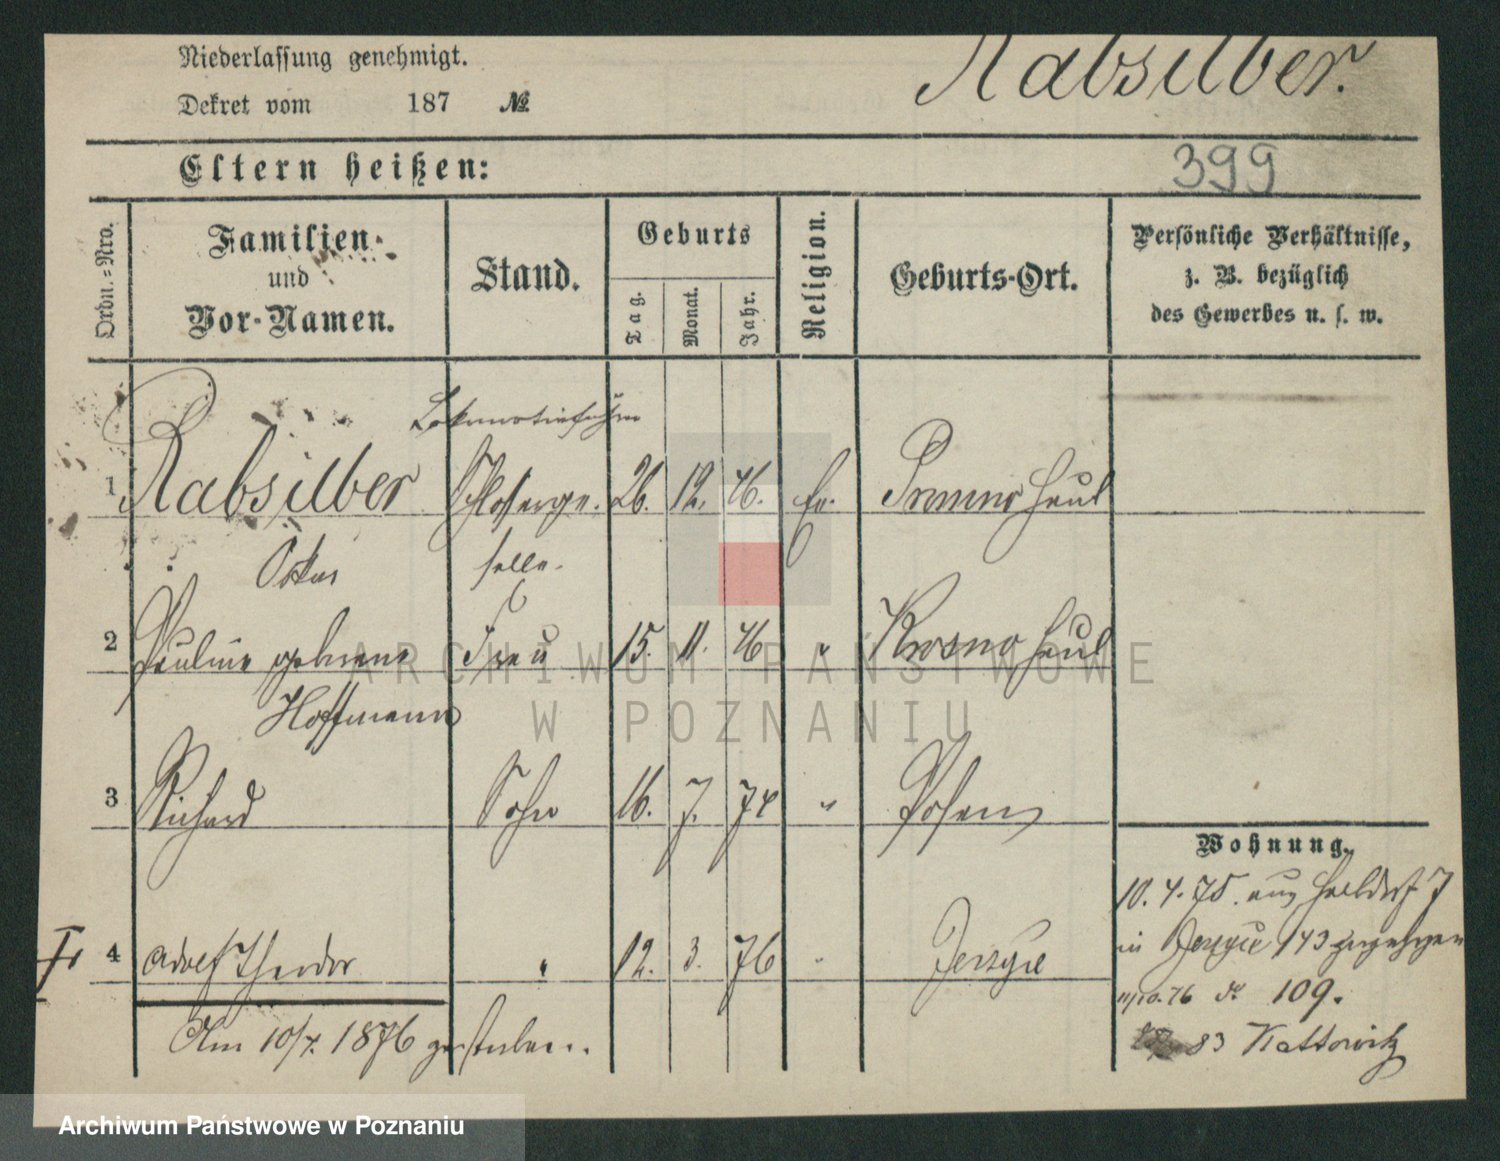 Niederlassung genehmigt.
Dekret vom 187 №
Rabsilber.
Eltern heißen:
399
Ordn.=Nro.
Familien-
und
Vor-Namen.
Stand.
Geburts
Tag.
Monat.
Jahr.
Religion.
Geburts-Ort.
Persönliche Verhältnisse,
z. B. bezüglich
des Gewerbes u. s. w.
Lokomotivführer
1 Rabsilber Schlosserge- 26. 12. 46. Ev.
Oskar selle.
2 Pauline geborene Frau 15. 11. 46 " Krosno
Hoffmann
3 Richard Sohn 16. 7. 74 " Posen
Wohnung.
10. 4. 75. aus
in Jerzyce 143 zugezogen
4 Adolf Theodor " 12. 3. 76 " Jerzyce
109.
Am 10/7. 1876 gestorben.
83 Kattowitz
ARCHIWUM PAŃSTWOWE
W POZNANIU
Archiwum Państwowe w Poznaniu